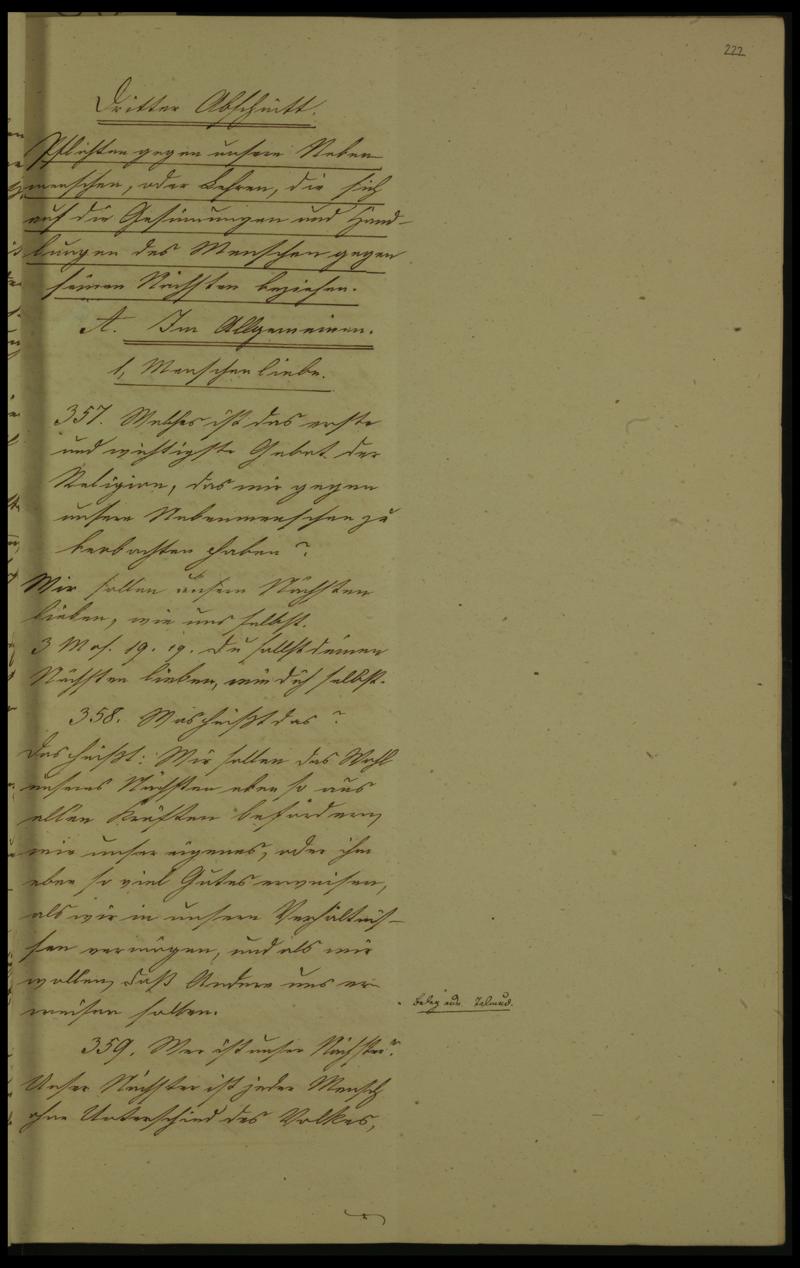 222
Dritter Abschnitt.
Pflichten gegen unsere Neben
menschen, oder Lehren, die sich
auf die Gesinnungen und Hand-
lungen des Menschen gegen
seinen Nächsten beziehen.
A. Im Allgemeinen.
1, Menschenliebe.
357. Welches ist das erste
und wichtigste Gebot der
Religion, das wir gegen
unsere Nebenmenschen zu
beobachten haben?
Wir sollen unsern Nächsten
lieben, wie uns selbst.
3 Mos. 19. 19. Du sollst deinen
Nächsten lieben, wie dich selbst.
358. Was heißt das?
Das heißt: Wir sollen das Wohl
unseres Nächsten eben so aus
allen Kräften befördern,
wie unser eigenes, oder ihm
eben so viel Gutes erweisen,
als wir in unsern Verhältnis-
sen vermögen, und als wir
wollen, daß Andere uns er
weisen sollen.
Beleg aus Talmud.
359. Wer ist unser Nächster?
Unser Nächster ist jeder Mensch
ohne Unterschied des Volkes,